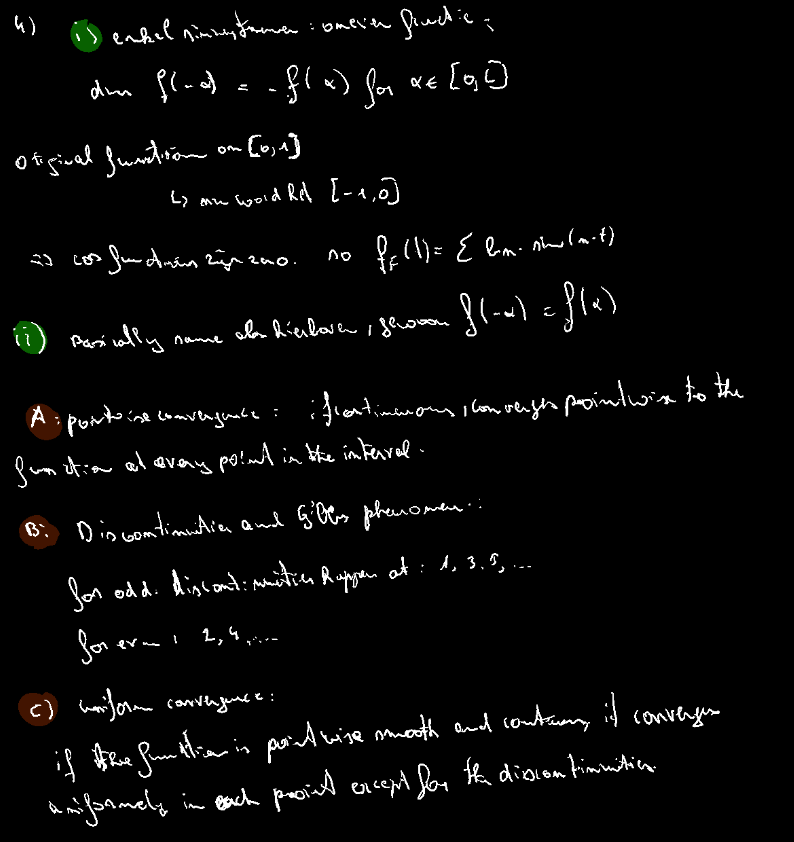 4) i) enkel sinustermen : oneven functie :
dus f(-α) = -f(α) for α ∈ [0,
original function on [0,1]
↳ nu word het [-1,0]
=> cos functions zijn zero. no f_F(t) = Σ bn. sin(n.t)
ii) Basically same als hierboven, gewoon f(-α) = f(α)
A: pointwise convergence : if continuous, converges pointwise to the
function at every point in the interval.
B: Discontinuities and Gibbs phenomen :
for odd. discontinuities happen at : 1, 3, 5, ...
for even : 2, 4, ...
C) uniform convergence :
if the function is pointwise smooth and continuous it converges
uniformely in each point except for the discontinuities.